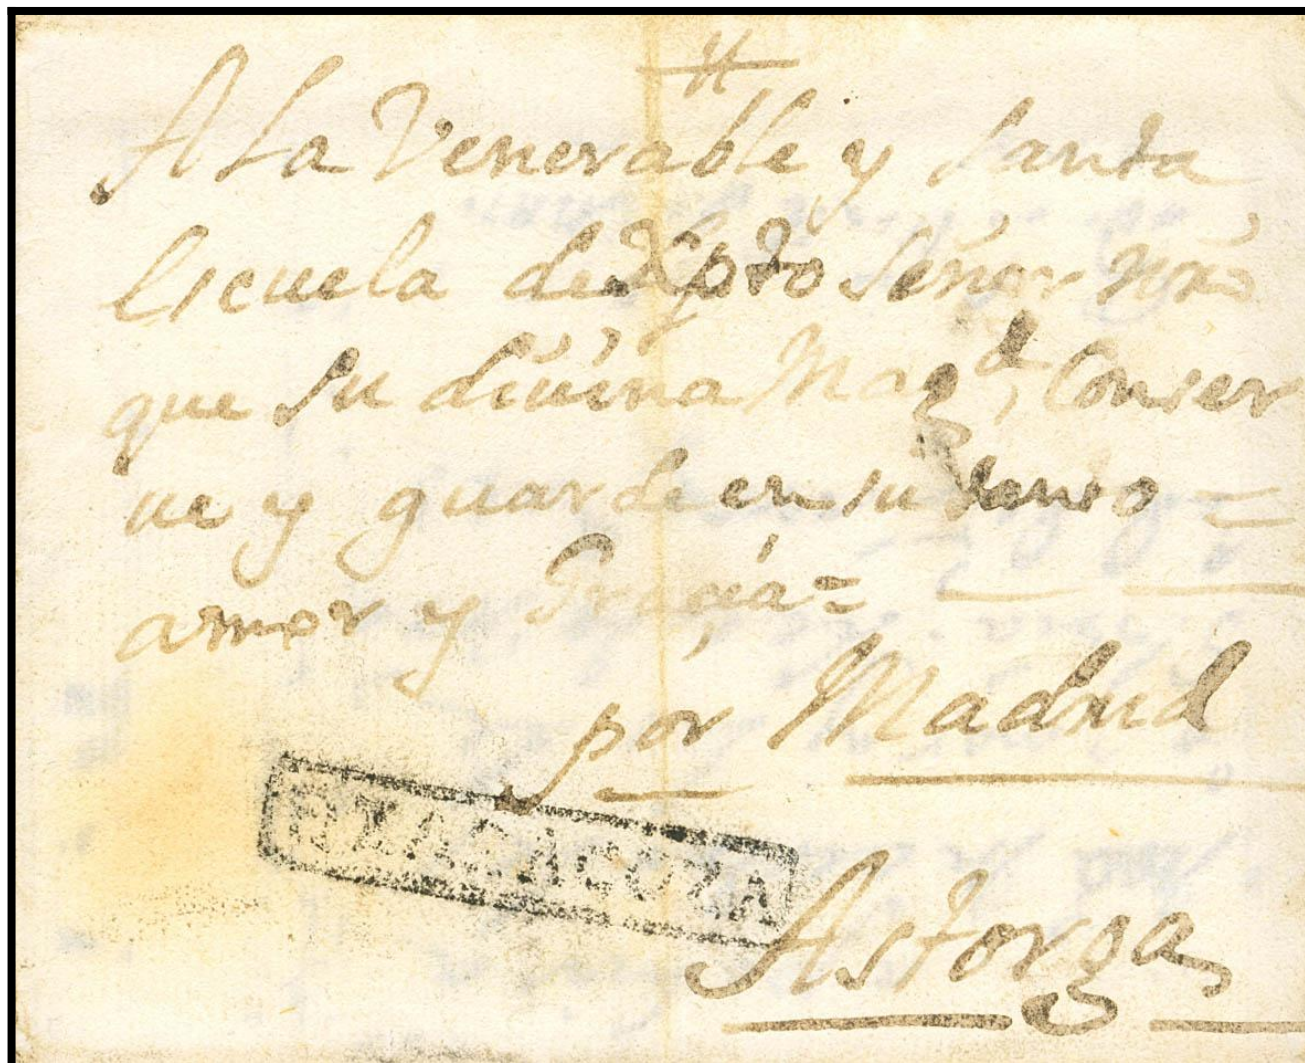 A La Venerable y Santa
Escuela de Xpto Señor nrõ
que su divina Mag.d Conser
ve y guarde en su santo =
amor y Gracia =
por Madrid
ZARAGOZA
Astorga